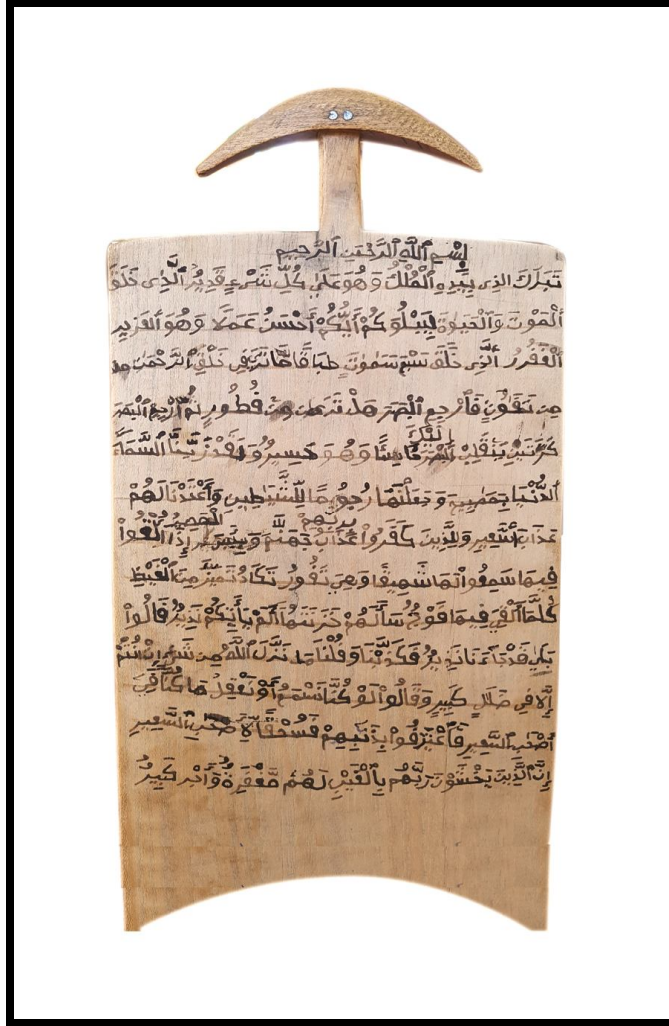 بِسْمِ ٱللَّهِ ٱلرَّحْمَٰنِ ٱلرَّحِيمِ
تَبَٰرَكَ ٱلذِى بِيَدِهِ ٱلْمُلْكُ وَهُوَ عَلَىٰ كُلِّ شَىْءٍ قَدِيرٌ ٱلَّذِى خَلَقَ
ٱلْمَوْتَ وَٱلْحَيَوٰةَ لِيَبْلُوَكُمْ أَيُّكُمْ أَحْسَنُ عَمَلًا وَهُوَ ٱلْعَزِيزُ
ٱلْغَفُورُ ٱلَّذِى خَلَقَ سَبْعَ سَمَٰوَٰتٍ طِبَاقًا مَّا تَرَىٰ فِى خَلْقِ ٱلرَّحْمَٰنِ
مِن تَفَٰوُتٍ فَٱرْجِعِ ٱلْبَصَرَ هَلْ تَرَىٰ مِن فُطُورٍ ثُمَّ ٱرْجِعِ ٱلْبَصَرَ
كَرَّتَيْنِ يَنقَلِبْ إِلَيْكَ ٱلْبَصَرُ خَاسِئًا وَهُوَ حَسِيرٌ وَلَقَدْ زَيَّنَّا ٱلسَّمَآءَ
ٱلدُّنْيَا بِمَصَٰبِيحَ وَجَعَلْنَٰهَا رُجُومًا لِّلشَّيَٰطِينِ وَأَعْتَدْنَا لَهُمْ
عَذَابَ ٱلسَّعِيرِ وَلِلَّذِينَ كَفَرُوا۟ بِرَبِّهِمْ عَذَابُ جَهَنَّمَ وَبِئْسَ ٱلْمَصِيرُ إِذَآ أُلْقُوا۟
فِيهَا سَمِعُوا۟ لَهَا شَهِيقًا وَهِىَ تَفُورُ تَكَادُ تَمَيَّزُ مِنَ ٱلْغَيْظِ
كُلَّمَآ أُلْقِىَ فِيهَا فَوْجٌ سَأَلَهُمْ خَزَنَتُهَآ أَلَمْ يَأْتِكُمْ نَذِيرٌ قَالُوا۟
بَلَىٰ قَدْ جَآءَنَا نَذِيرٌ فَكَذَّبْنَا وَقُلْنَا مَا نَزَّلَ ٱللَّهُ مِن شَىْءٍ إِنْ أَنتُمْ
إِلَّا فِى ضَلَٰلٍ كَبِيرٍ وَقَالُوا۟ لَوْ كُنَّا نَسْمَعُ أَوْ نَعْقِلُ مَا كُنَّا فِىٓ
أَصْحَٰبِ ٱلسَّعِيرِ فَٱعْتَرَفُوا۟ بِذَنۢبِهِمْ فَسُحْقًا لِّأَصْحَٰبِ ٱلسَّعِيرِ
إِنَّ ٱلَّذِينَ يَخْشَوْنَ رَبَّهُم بِٱلْغَيْبِ لَهُم مَّغْفِرَةٌ وَأَجْرٌ كَبِيرٌ